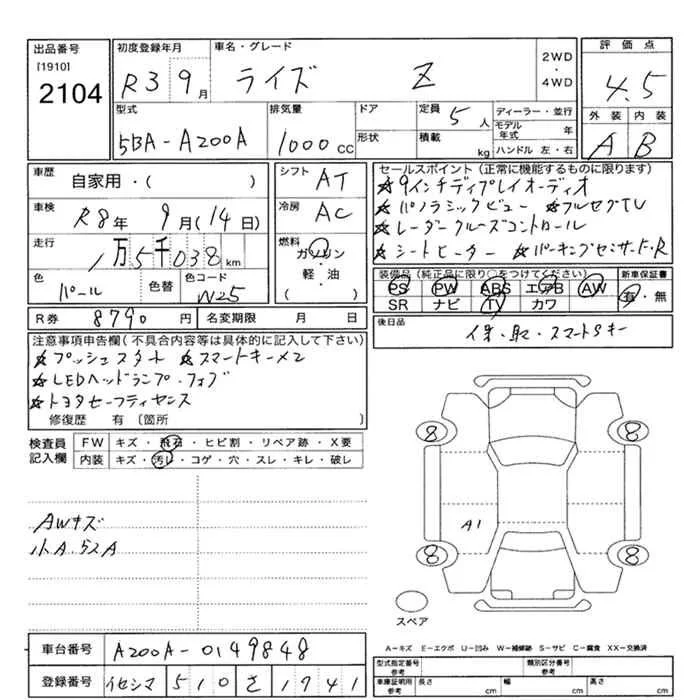 出品番号 初度登録年月 車名・グレード 2WD・4WD 評価点
[1910]
2104
R3 9月 ライズ Z 4.5
型式 排気量 ドア 定員 5人 ディーラー・並行 外装 内装
モデル年式 年
5BA-A200A 1000CC 形状 積載 kg ハンドル 左・右 A B
車歴 自家用・( ) シフト AT
セールスポイント(正常に機能するものに限ります)
★9インチディプレイオーディオ
★パノラミックビュー ★フルセグTV
★レーダークルーズコントロール
★シートヒーター ★パーキングセンサF・R
車検 R8年 9月(14日) 冷房 AC
走行 1万5千038km 燃料 ガソリン・軽・油( )
色 パール 色替 色コード W25
装備品(純正品に限り○をつけてください) 新車保証書
PS PW ABS エアB AW 有・無
SR ナビ TV カワ
R券 8790円 名変期限 月 日
後日品 保・取・スマートSキー
注意事項申告欄(不具合内容等は具体的に記入して下さい)
★プッシュスタート ★スマートキー×2
★LEDヘッドランプ・フォグ
★トヨタセーフティセンス
修復歴 有 〔箇所
検査員記入欄 FW キズ・飛石・ヒビ割・リペア跡・X要
内装 キズ・汚レ・コゲ・穴・スレ・キレ・破レ
8 8
AWキズ
小A,5Z A
A1
8 8
スペア
A－キズ E－エクボ U－凹み W－補修跡 S－サビ C－腐食 XX－交換済
車台番号 A200A-0149848
型式指定番号 参考 類別区分番号 参考
登録番号 イセシマ 510 さ 1741
車庫証明用 参考 長さ cm 幅 cm 高さ cm